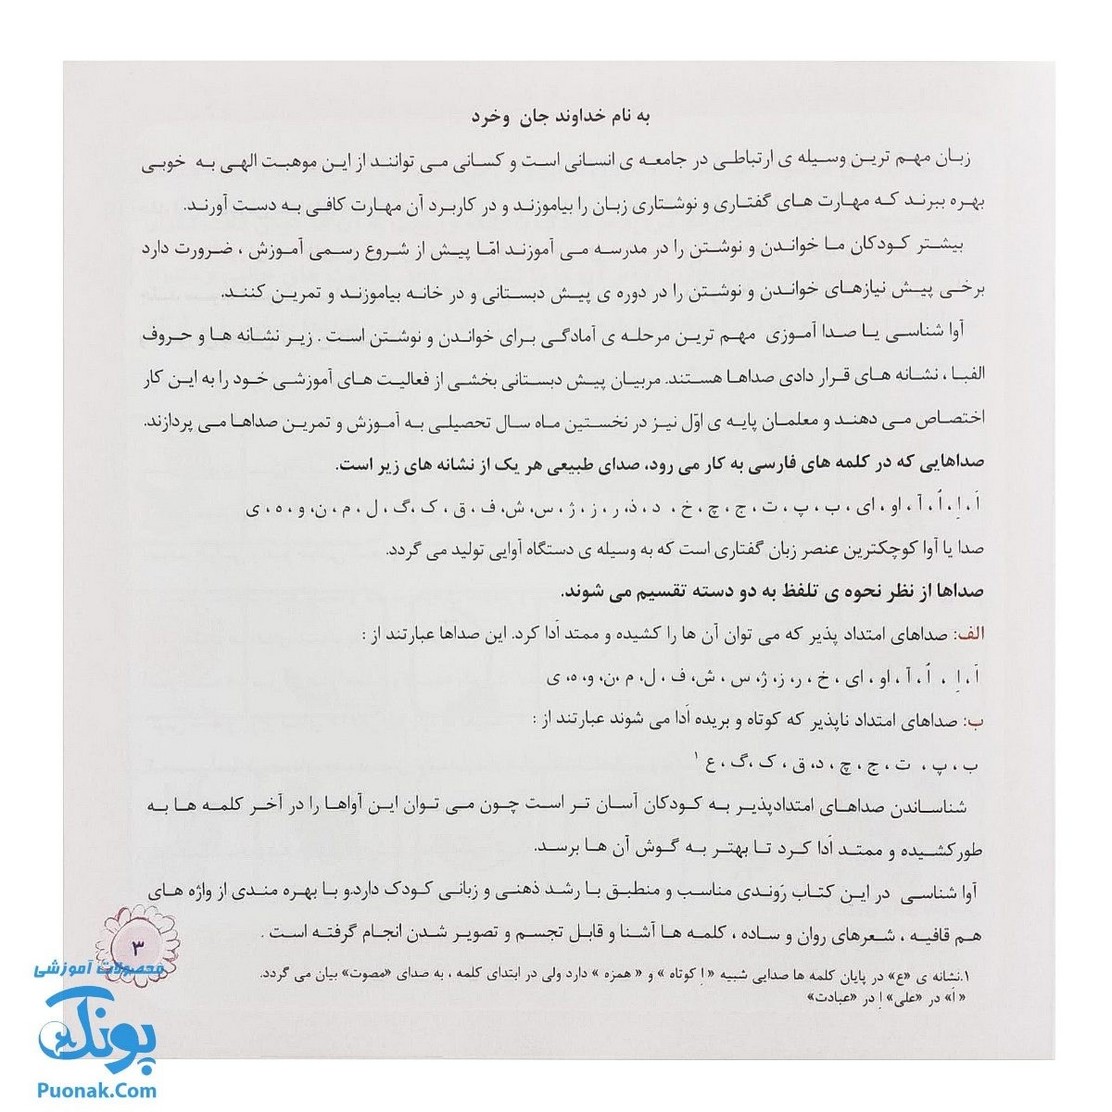 به نام خداوند جان وخرد
زبان مهم ترین وسیله ی ارتباطی در جامعه ی انسانی است و کسانی می توانند از این موهبت الهی به خوبی
بهره ببرند که مهارت های گفتاری و نوشتاری زبان را بیاموزند و در کاربرد آن مهارت کافی به دست آورند.
بیشتر کودکان ما خواندن و نوشتن را در مدرسه می آموزند امّا پیش از شروع رسمی آموزش ، ضرورت دارد
برخی پیش نیازهای خواندن و نوشتن را در دوره ی پیش دبستانی و در خانه بیاموزند و تمرین کنند.
آوا شناسی یا صدا آموزی مهم ترین مرحله ی آمادگی برای خواندن و نوشتن است . زیر نشانه ها و حروف
الفبا ، نشانه های قرار دادی صداها هستند. مربیان پیش دبستانی بخشی از فعالیت های آموزشی خود را به این کار
اختصاص می دهند و معلمان پایه ی اوّل نیز در نخستین ماه سال تحصیلی به آموزش و تمرین صداها می پردازند.
صداهایی که در کلمه های فارسی به کار می رود، صدای طبیعی هر یک از نشانه های زیر است.
اَ ، اِ ، اُ ، آ ، او ، ای ، ب ، پ ، ت ، ج ، چ ، خ ، د ، ذ، ر ، ز ، ژ ، س، ش، ف ، ق ، ک ،گ ، ل ، م ، ن، و ، ه ، ی
صدا یا آوا کوچکترین عنصر زبان گفتاری است که به وسیله ی دستگاه آوایی تولید می گردد.
صداها از نظر نحوه ی تلفظ به دو دسته تقسیم می شوند.
الف: صداهای امتداد پذیر که می توان آن ها را کشیده و ممتد اَدا کرد. این صداها عبارتند از :
اَ ، اِ ، اُ ، آ ، او ، ای ، خ ، ر، ز، ژ، س ، ش، ف ، ل، م ،ن، و، ه، ی
ب: صداهای امتداد ناپذیر که کوتاه و بریده اَدا می شوند عبارتند از :
ب ، پ ، ت ، ج ، چ ، د، ق ، ک ،گ ، ع ۱
شناساندن صداهای امتدادپذیر به کودکان آسان تر است چون می توان این آواها را در آخر کلمه ها به
طورکشیده و ممتد اَدا کرد تا بهتر به گوش آن ها برسد.
آوا شناسی در این کتاب رَوندی مناسب و منطبق با رشد ذهنی و زبانی کودک دارد.و با بهره مندی از واژه های
هم قافیه ، شعرهای روان و ساده ، کلمه ها آشنا و قابل تجسم و تصویر شدن انجام گرفته است .
۱.نشانه ی «ع» در پایان کلمه ها صدایی شبیه « اِ کوتاه » و « همزه » دارد ولی در ابتدای کلمه ، به صدای «مصوت» بیان می گردد.
« اَ» در «علی» اِ در «عبادت»
۳
محصولات آموزشی
پونک
Puonak.Com